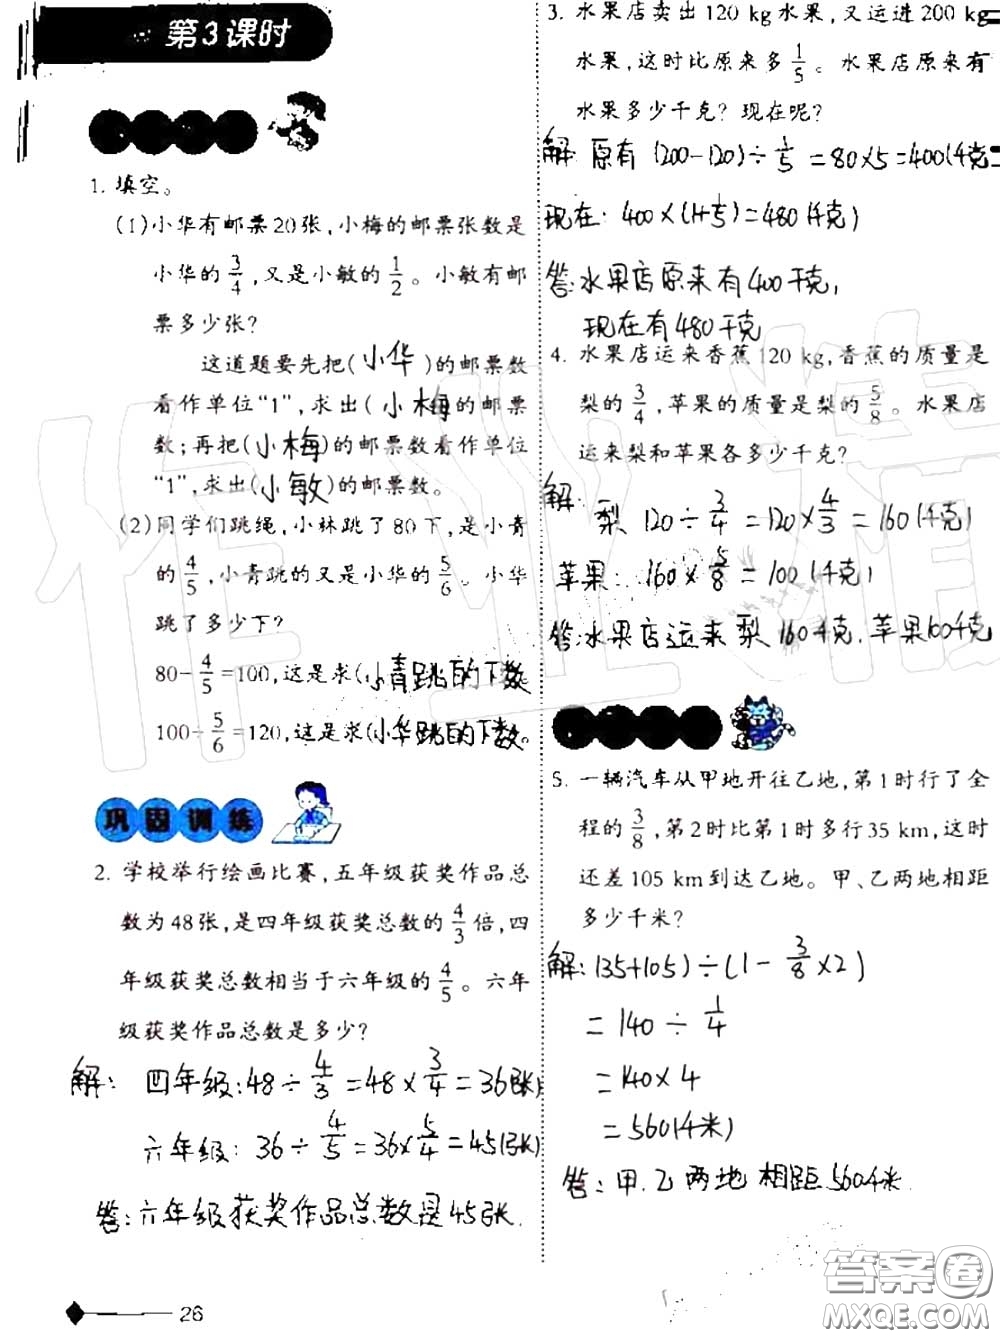 第3课时
1. 填空。
(1)小华有邮票20张,小梅的邮票张数是
小华的3/4,又是小敏的1/2。小敏有邮
票多少张?
这道题要先把(小华)的邮票数
看作单位“1”,求出(小梅的邮票
数;再把(小梅)的邮票数看作单位
“1”,求出(小敏)的邮票数。
(2)同学们跳绳,小林跳了80下,是小青
的4/5,小青跳的又是小华的5/6。小华
跳了多少下?
80-4/5=100,这是求(小青跳的下数。
100÷5/6=120,这是求(小华跳的下数。
巩固训练
2. 学校举行绘画比赛,五年级获奖作品总
数为48张,是四年级获奖总数的4/3倍,四
年级获奖总数相当于六年级的4/5。六年
级获奖作品总数是多少?
解: 四年级:48÷4/3=48×3/4=36(张)
六年级:36÷4/5=36×5/4=45(张)
答:六年级获奖作品总数是45张.
26
3. 水果店卖出120 kg水果,又运进200 kg
水果,这时比原来多1/5。水果店原来有
水果多少千克?现在呢?
解:原有(200-120)÷1/5=80×5=400(千克
现在:400×(1+1/5)=480(千克)
答:水果店原来有400千克,
现在有480千克
4. 水果店运来香蕉120 kg,香蕉的质量是
梨的3/4,苹果的质量是梨的5/8。水果店
运来梨和苹果各多少千克?
解: 梨 120÷3/4=120×4/3=160(千克)
苹果: 160×5/8=100(千克)
答:水果店运来梨160千克.苹果100千克
5. 一辆汽车从甲地开往乙地,第1时行了全
程的3/8,第2时比第1时多行35 km,这时
还差105 km到达乙地。甲、乙两地相距
多少千米?
解:(35+105)÷(1-3/8×2)
=140÷1/4
=140×4
=560(千米)
答:甲.乙两地相距560千米.
作业精
答案卷
MXQE.COM